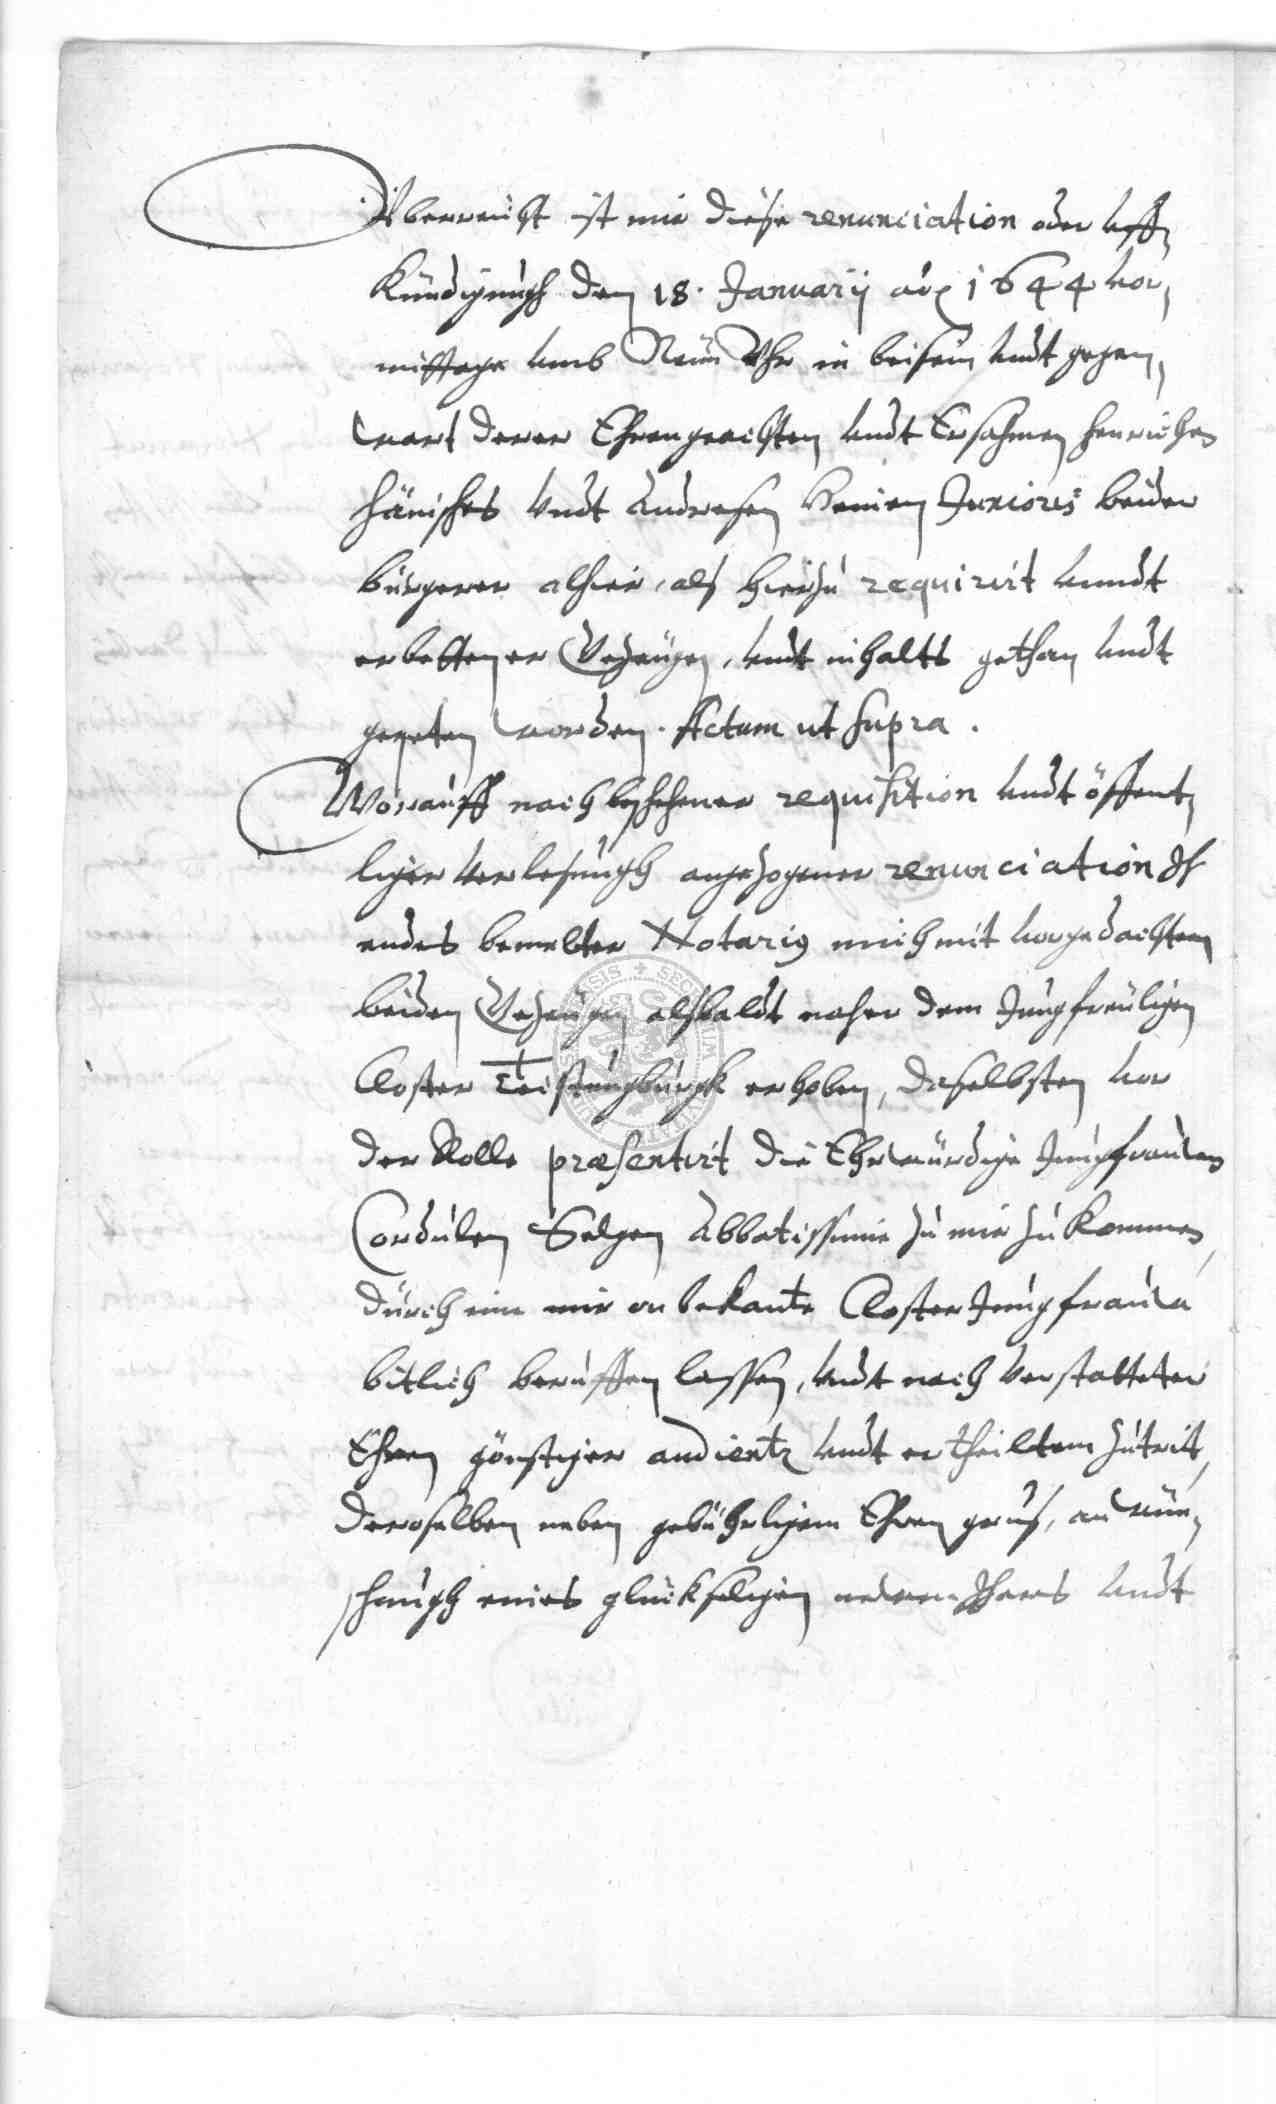 Uberreicht ist mir diese renunciation oder Uff,
kündigungh den 18. Januarij aõ 1644 vor,
mittage umb Neun Uhr in beisein undt gegen,
wart derer Ehrengeachten undt Ersahmen Henrichen
Hänisches undt Andresen Heinien Junioris beider
bürgerer alhier, als hierzu requirirt unndt
erbettener Gezeugen, undt inhalts gethan undt
gepeten worden. Actum ut supra.
Worauff nach beschehener requisition undt öffent,
liger verlesungh angezogener renunciation Ich
endes bemelter Notarius mich mit vorgedachten
beiden Gezeugen alsbaldt naher dem Jungfreuligen
Closter Teistungburgk erhoben, daselbsten vor
der Rolle præsentirt die Ehrwürdige Jungfrauwen
Cordulen Abbatissinne zu mir zu kommen,
durch eine mir onbekante Closter Jungfrauw
bitlich beruffen lassen, undt nach verstatteter
Ehren günstiger audientz undt ertheiltem zutrit,
deroselben neben gebührligem Ehren grus, anwün,
schungh eines glückseligen newen Jhars undt